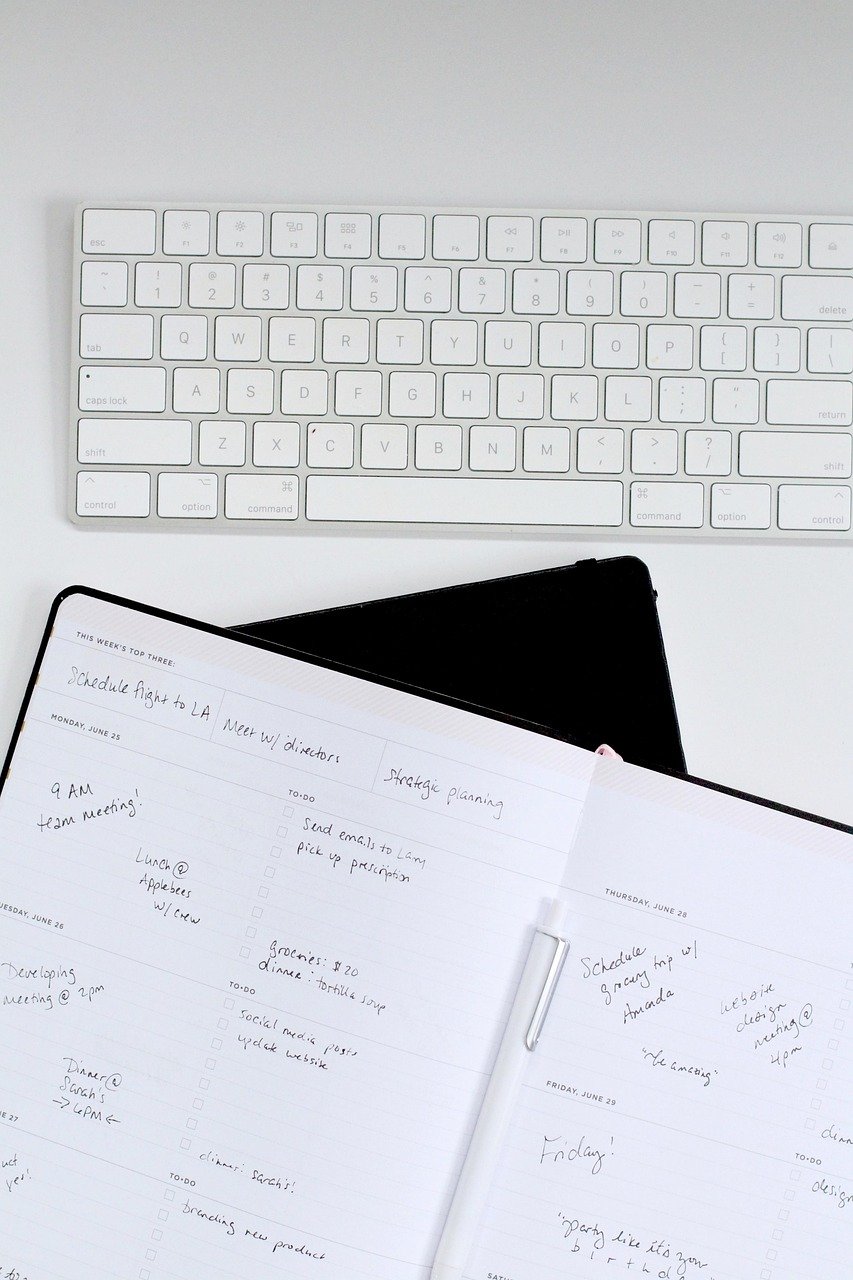 esc F1 F2 F3 F4 F5 F6 F7 F8 F9 F10 F11 F12
~ ! @ # $ % ^ & * ( ) - +
` 1 2 3 4 5 6 7 8 9 0 - = delete
tab Q W E R T Y U I O P { [ } ] | \
caps lock A S D F G H J K L : ; " ' return
shift Z X C V B N M < , > . ? / shift
control option command command option control
THIS WEEK'S TOP THREE:
Schedule flight to LA
Meet w/ directors
Strategic planning
MONDAY, JUNE 25
9 AM
team meeting!
Lunch @
Applebees
w/ crew
TO-DO
Send emails to
pick up prescription
groceries: $20
dinner: tortilla soup
UESDAY, JUNE 26
Developing
meeting @ 2pm
Dinner @
Sarah's
→ 6PM ←
TO-DO
social media posts
update website
dinner: Sarah's!
27
yes!
TO-DO
branding new product
THURSDAY, JUNE 28
Schedule
grocery trip w/
Amanda
website
design
meeting @
4pm
"be amazing"
FRIDAY, JUNE 29
Friday!
"party like it's you
b i r t h d
TO-DO
design